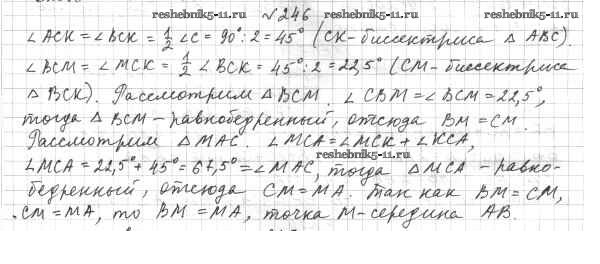 reshebnik5-11.ru №246 reshebnik5-11.ru
∠ACK = ∠BCK = 1/2 ∠C = 90° : 2 = 45° (CK - биссектриса △ ABC).
∠BCM = ∠MCK = 1/2 ∠BCK = 45° : 2 = 22,5° (CM - биссектриса
△ BCK). Рассмотрим △ BCM. ∠CBM = ∠BCM = 22,5°,
тогда △ BCM - равнобедренный, отсюда BM = CM.
Рассмотрим △ MAC. ∠MCA = ∠MCK + ∠KCA,
reshebnik5-11.ru
∠MCA = 22,5° + 45° = 67,5° = ∠MAC, тогда △ MCA - равно-
бедренный, отсюда CM = MA. Так как BM = CM,
CM = MA, то BM = MA, точка M - середина AB.